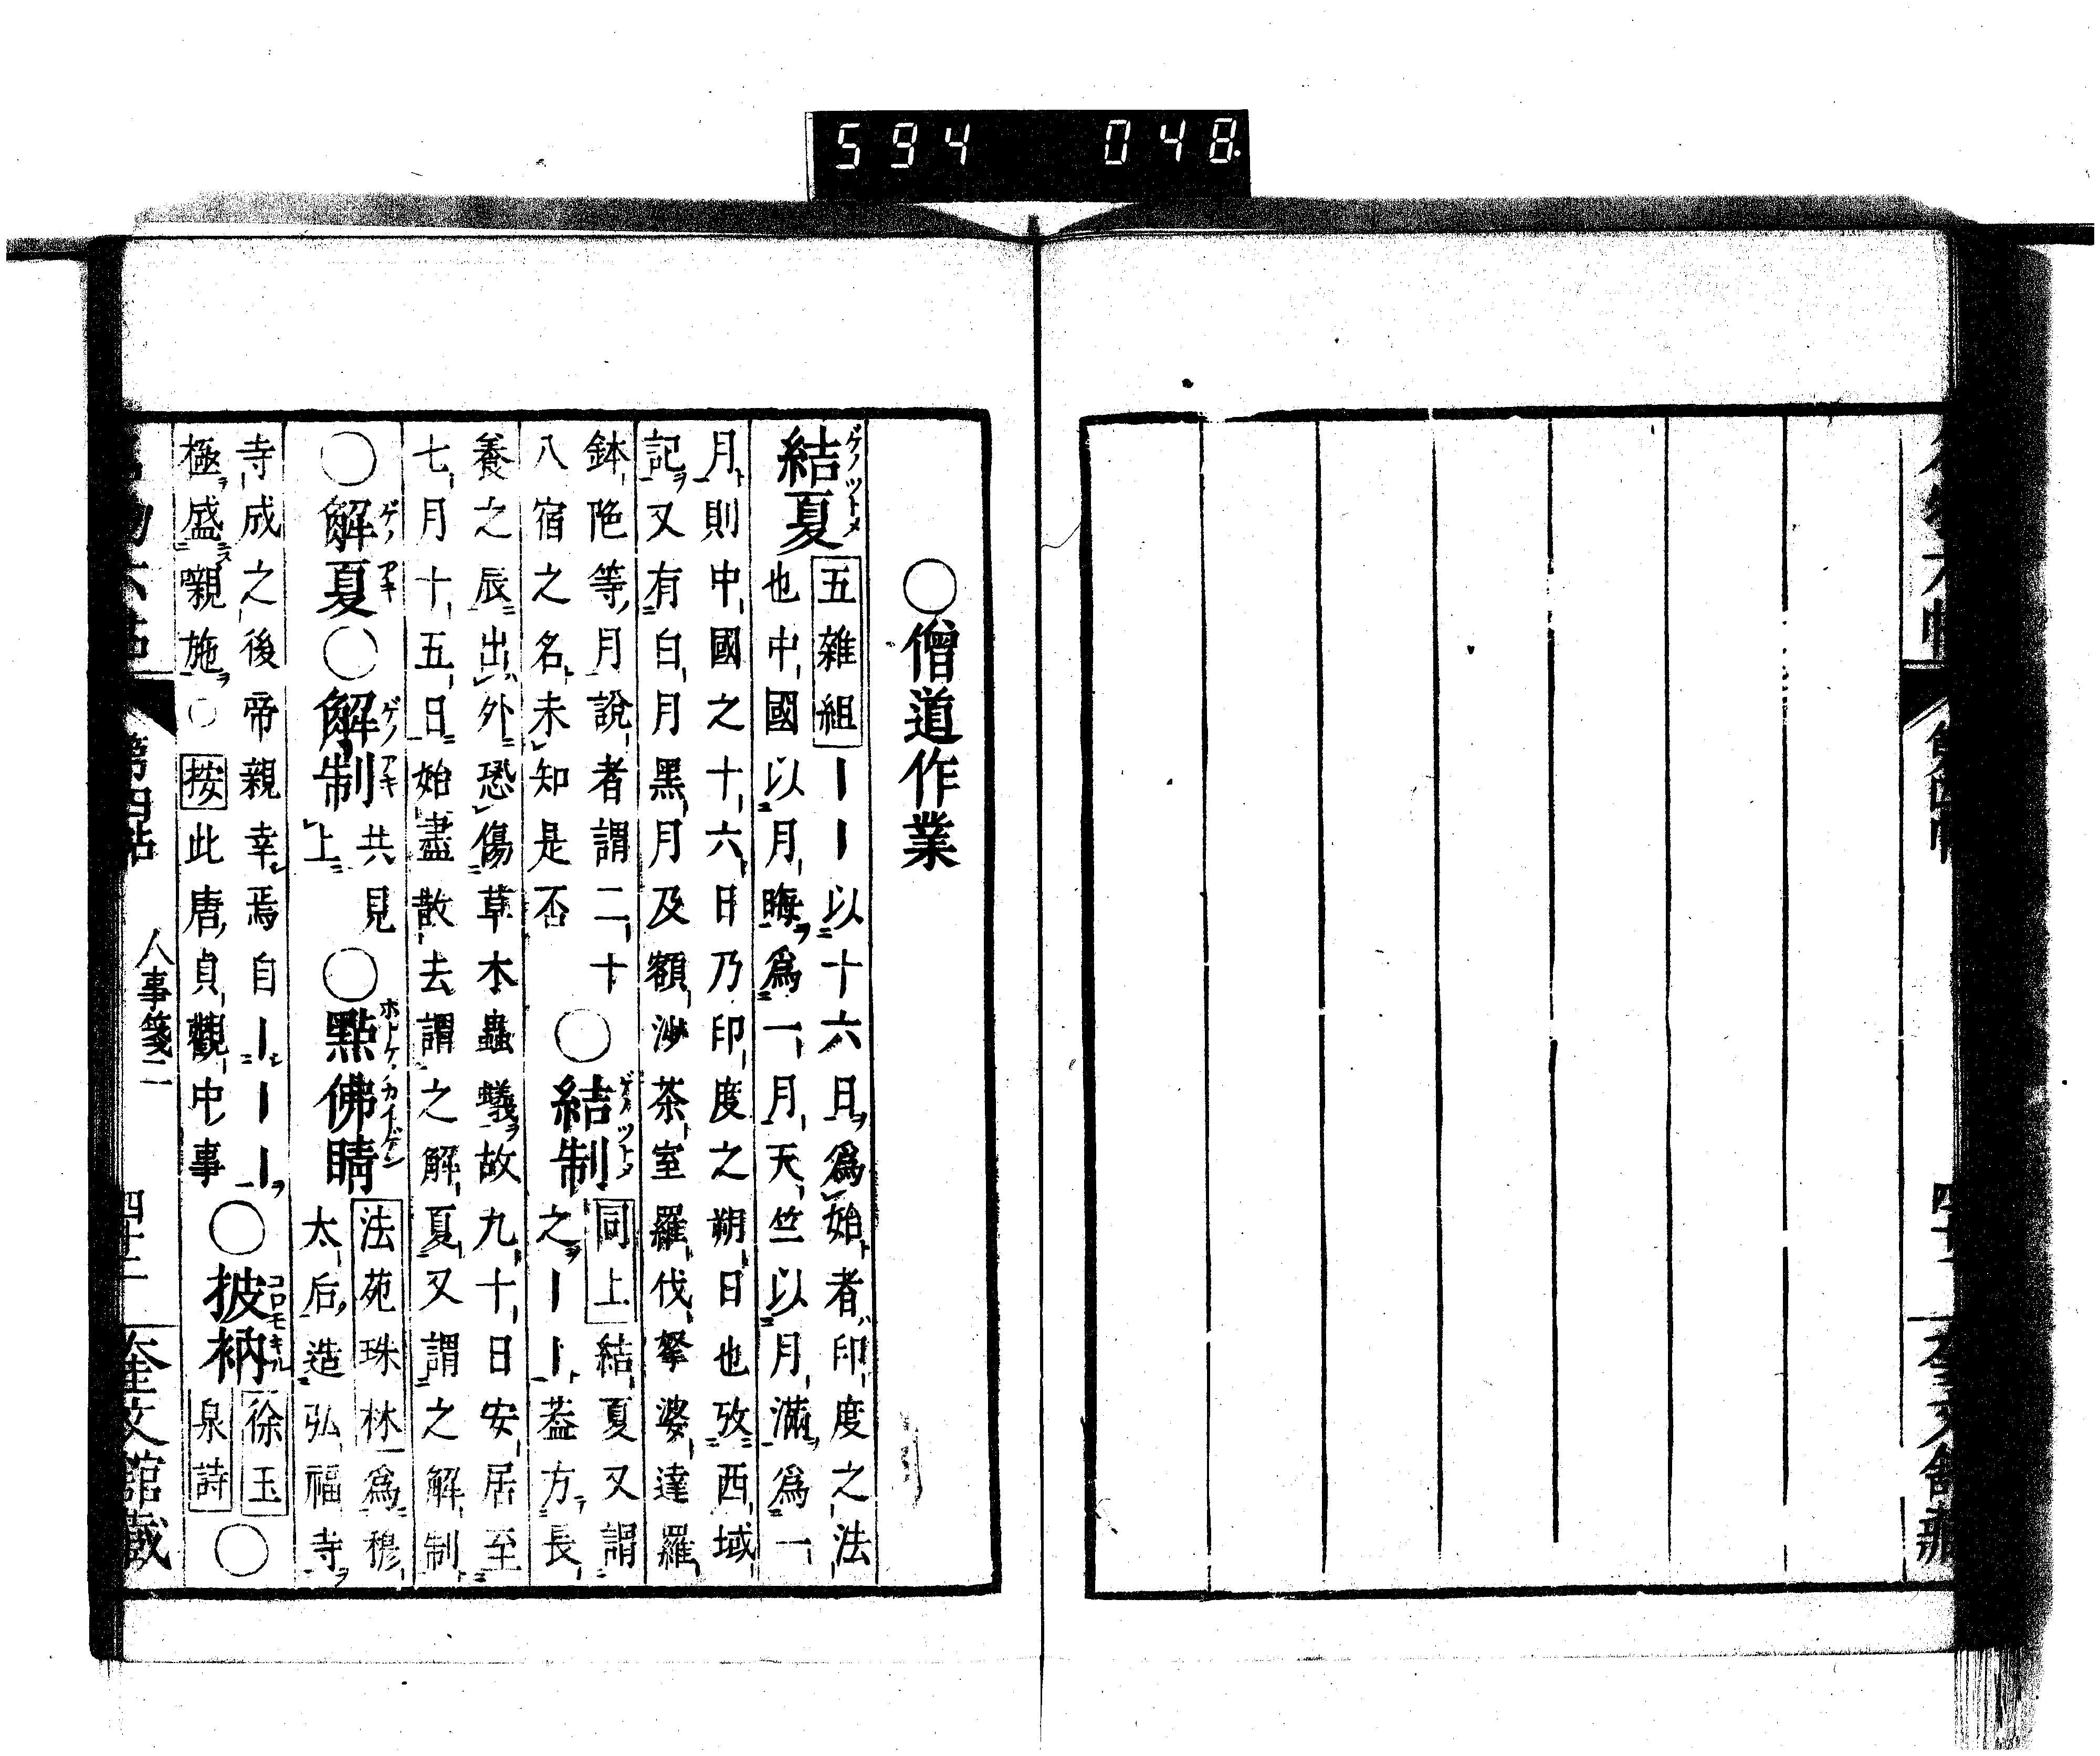 594 048
○僧道作業
結夏 ゲノツトメ
五雜組｜｜以十六日ヲ爲始者ハ印度之法
也中國以月晦ヲ爲一月天竺以月滿ヲ爲一
月ト則中國之十六日乃印度之朔日也攷西域
記ヲ又有白月黑月及額沙荼室羅伐拏婆達羅
鉢陁等月說者謂二十
八宿之名未知是否
○結制 ゲノツトメ
同上結夏又謂
之ヲ｜｜葢方ヲ長
養之辰出外恐傷草木蟲蟻ヲ故九十日安居至
七月十五日始盡散去謂之解夏又謂之解制
○解夏 ゲノアキ
○解制 ゲノアキ
共見上
○點佛睛 ホトケノカイゲン
法苑珠林爲穆
太后造弘福寺ヲ
寺成之後帝親幸焉自｜｜｜ヲ
極ヲ盛ス嚫施ヲ○按此唐貞觀中事
○披衲 コロモキル
徐玉
泉詩
○
人事箋二
奎文館藏